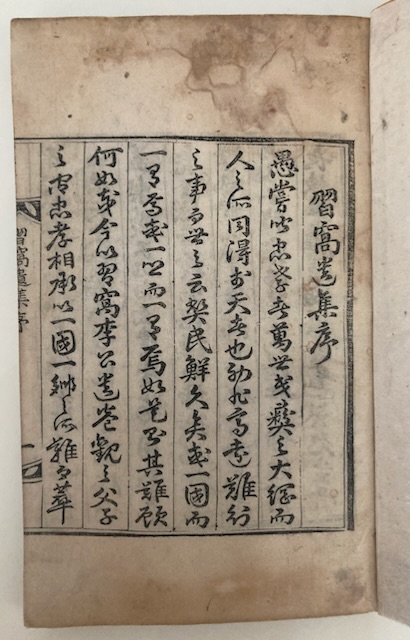 習窩遺集序
愚嘗以忠孝者萬世民彛之大綱而
人之所同得於天者也初非高遠難行
之事而世之云民鮮久矣或一國而
一有焉或一世而一有焉如是其難顧
何如哉今以習窩李公遺卷觀之父子
之間忠孝相承以一國一鄉之所難而萃
習窩遺集序
一